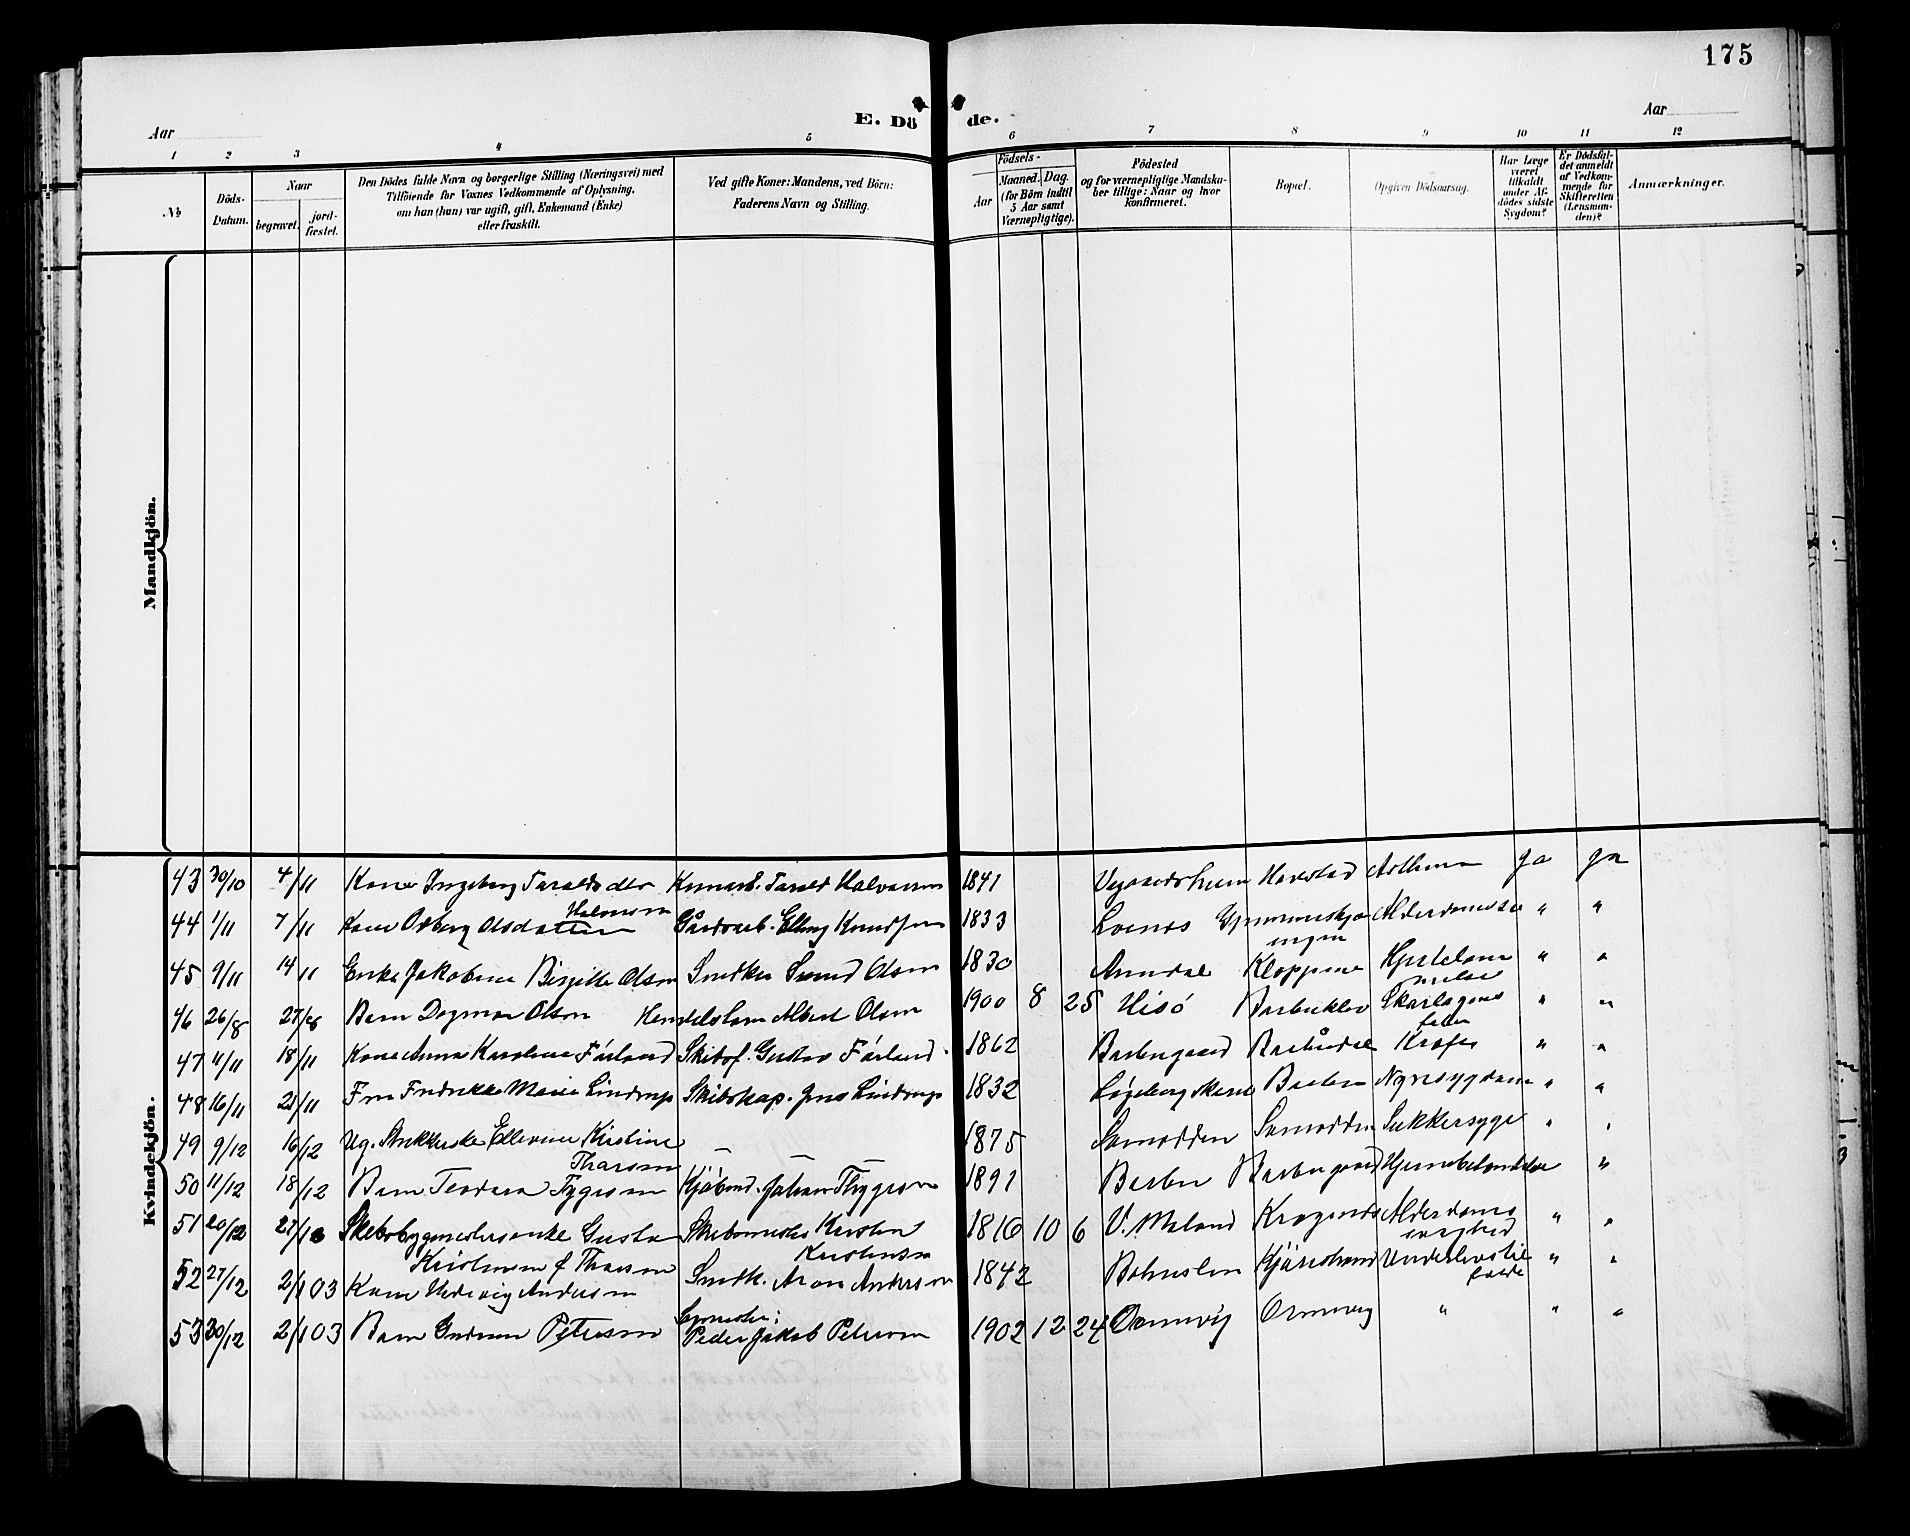 175
E. Dö de.
Aar
Aar
1 2 3 4 5 6 7 8 9 10 11 12
№
Döds-Datum.
Naar
begravet.
jord-fæstet.
Den Dödes fulde Navn og borgerlige Stilling (Næringsvei) med
Tilföiende for Voxnes Vedkommende af Oplysning,
om han (hun) var ugift, gift, Enkemand (Enke)
eller fraskilt.
Ved gifte Koner: Mandens, ved Börn:
Faderens Navn og Stilling.
Födsels-
Aar
Maaned. Dag.
(for Börn indtil
5 Aar samt
Værnepligtige).
Födested
og for værnepligtige Mandska-
ber tillige: Naar og hvor
konfirmeret.
Bopæl.
Opgiven Dödsaarsag.
Har Læge
været
tilkaldt
under Af-
dödes sidste
Sygdom?
Er Dödsfal-
det anmeldt
af Vedkom-
mende for
Skifteretten
(Lensman-
den)?
Anmærkninger.
Mandkjön.
Kvindekjön.
43 30/10 4/11 Kone Ingeborg Taraldsdtr Tarald Halvorsen 1841 Havstad Asthma ja ja
Halvorsen
44 1/11 7/11 Kone Olsdatter Gårdarb. Elling Knudsen 1833 "  "
45 9/11 14/11 Enke Jakobine Birgitte Olsen Snedker Svend Olsen 1830 Arendal Kloppene Hjertelam " "
melse
46 26/8 27/8 Barn Dagmar Olsen Albert Olsen 1900 8 25 Hisö Barbuklev Skarlagens " "
feber
47 4/11 18/11 Kone Anna Karoline Færland Skibsf. Gustav Færland 1862 Barbugaard Barbudal Kræft " "
48 16/11 21/11 Fru Fredrikke Marie Lindrup Skibskap. Jens Lindrup 1832 Barbu Nyresygdom " "
49 9/12 16/12 Ug. Ellevine Kirstine — — — 1875 Lamodden Lamodden Sukkersyge " "
Tharsen
50 11/12 18/12 Barn Teodora Tygesen Johan Thygesen 1891 Barbu Barbugaard "
51 20/12 27/12 Skibsbygmesterenke Gusta Kristen 1816 10 6 V. Moland Alderdoms " "
Kristensen f Tharsen Kristensen svaghed
52 27/12 2/1 03 Kone Hedevig Andersen Snedk. Aron Andersen 1842 Bohuslen Kjærstrand Underlivstil " "
fælde
53 30/12 2/1 03 Barn Gudrun Petersen Peder Jakob Petersen 1902 12 24 Ormevig Ormevig " " "